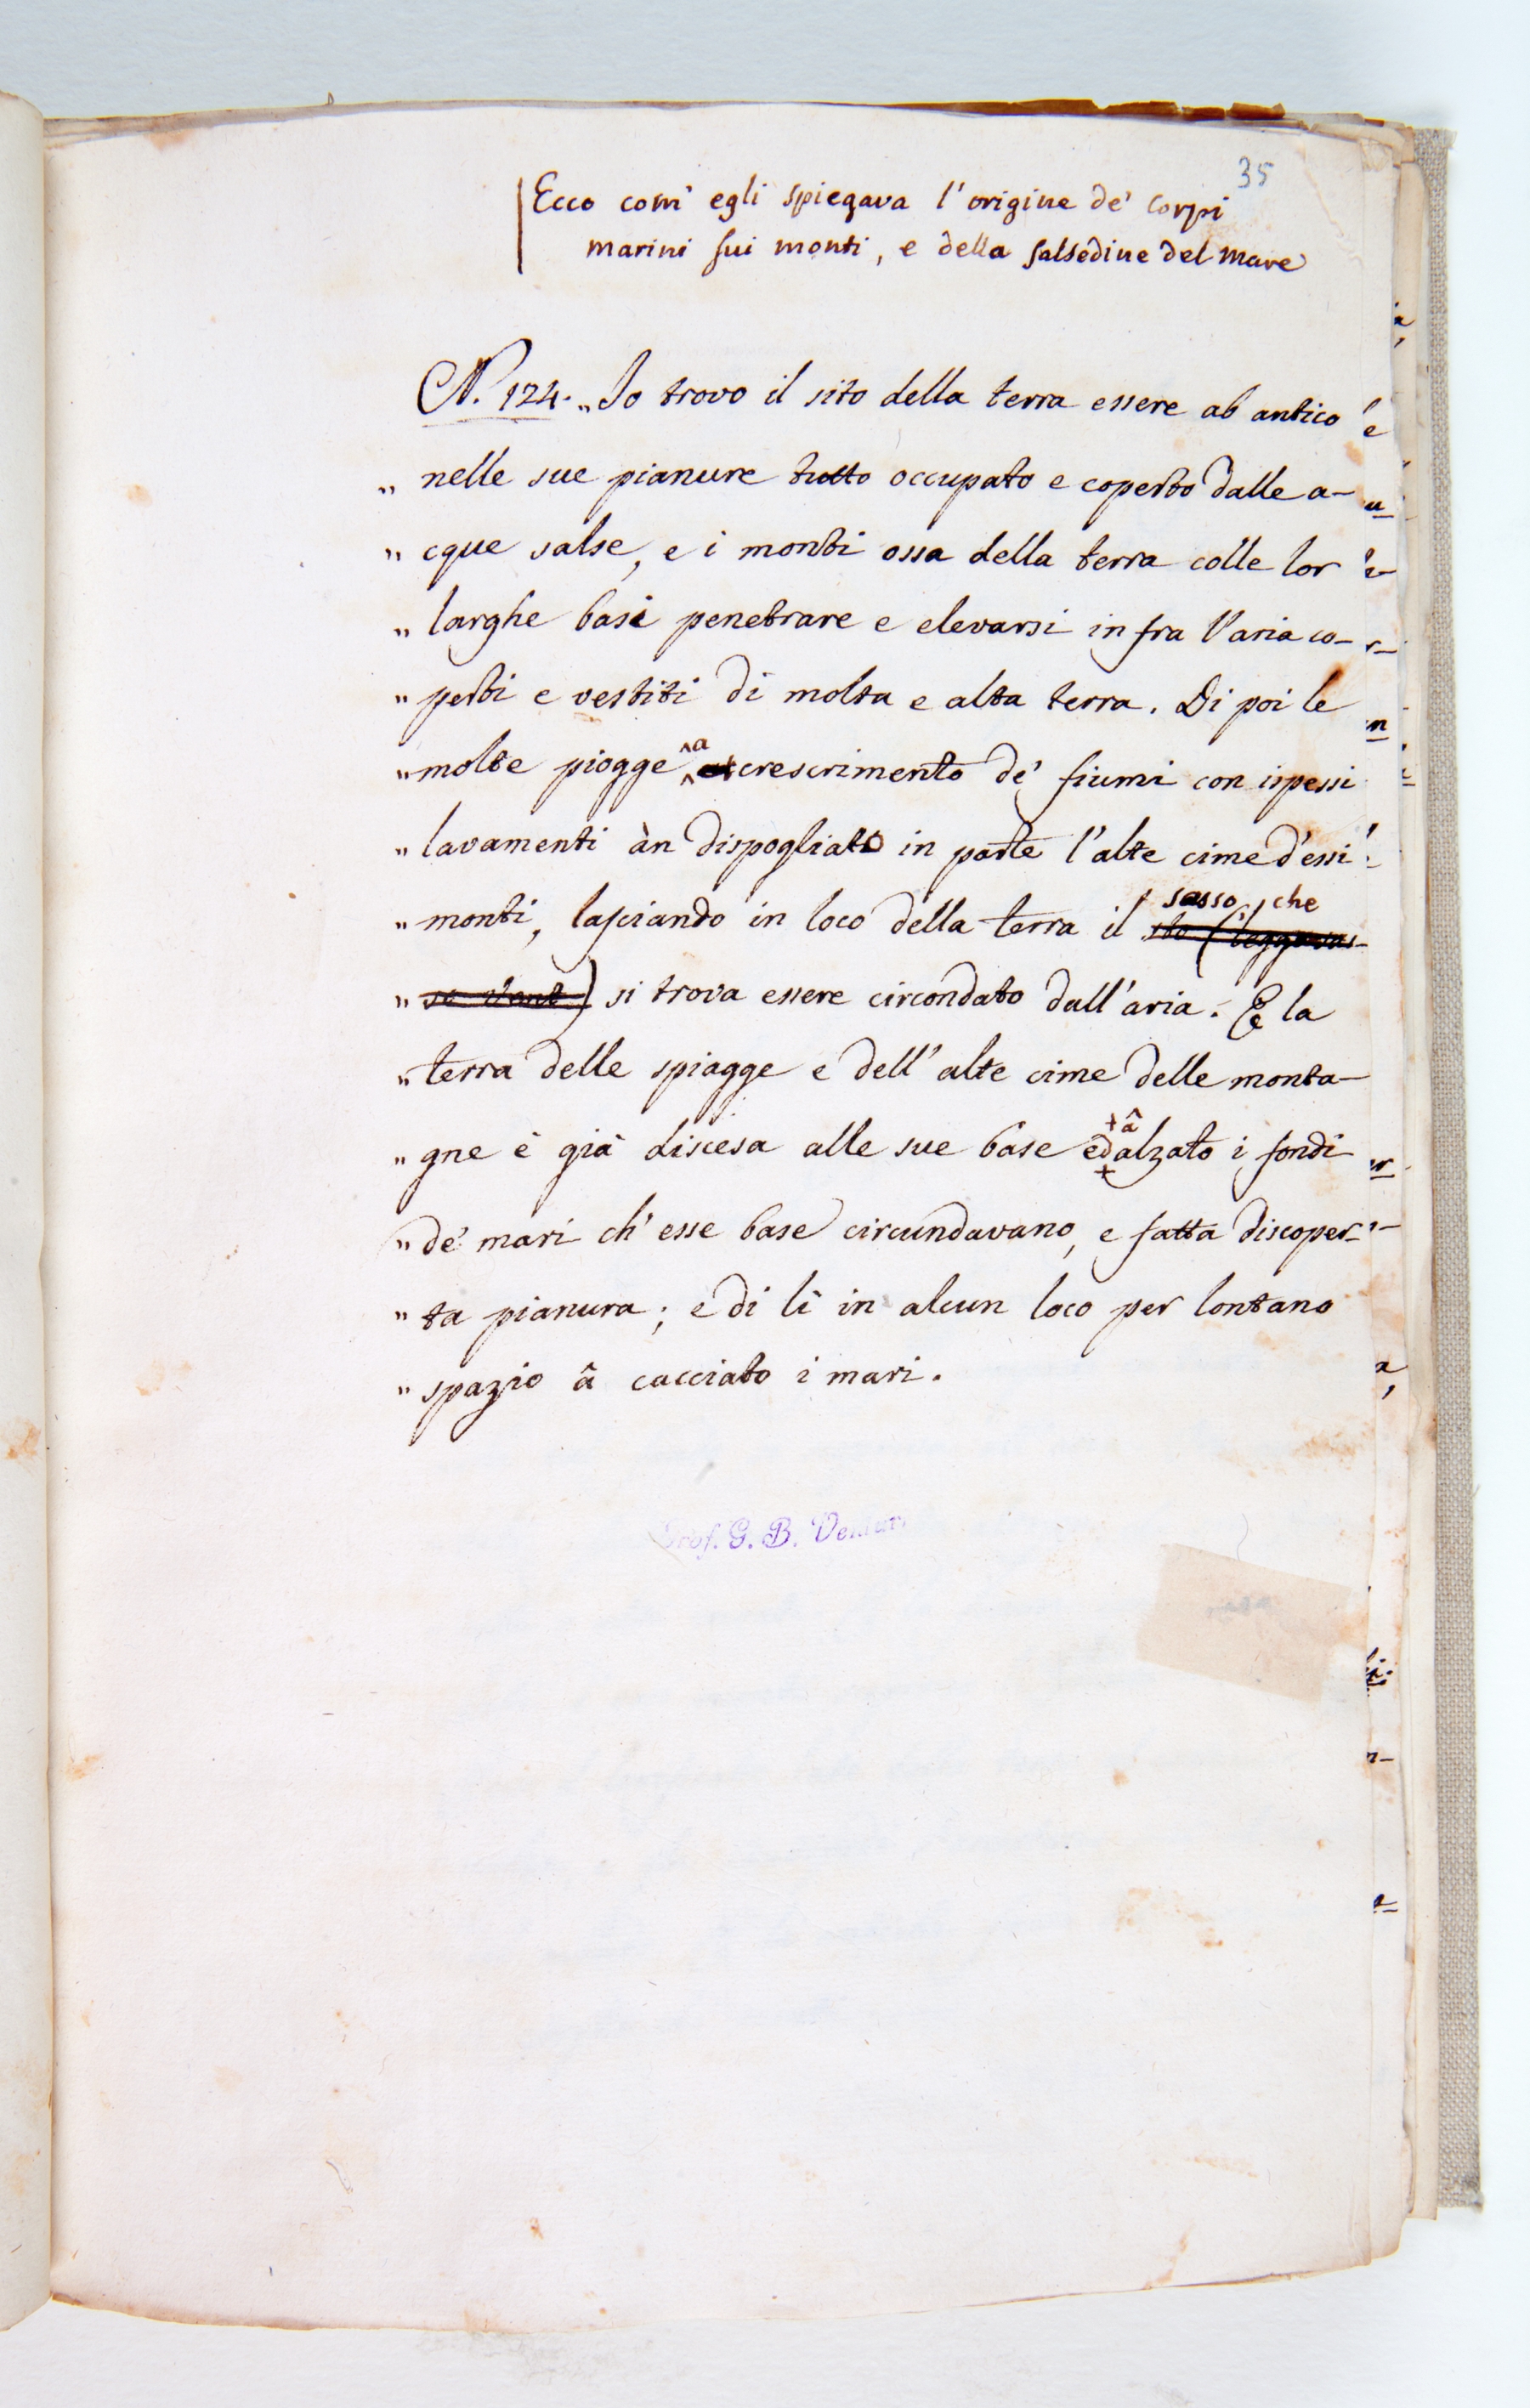 35
Ecco com' egli spiegava l'origine de' corpi
marini sui monti, e della salsedine del mare
N. 124. „ Io trovo il sito della terra essere ab antico
„ nelle sue pianure tutto occupato e coperto dalle a-
„ cque salse, e i monti ossa della terra colle lor
„ larghe basi penetrare e elevarsi in fra l'aria co-
„ perti e vestiti di molta e alta terra. Di poi le
a
„ molte piogge crescrimento de' fiumi con ispessi
„ lavamenti àn dispogliato in parte l'alte cime d'essi
sasso, che
„ monti, lasciando in loco della terra il
„ si trova essere circondato dall'aria. E la
„ terra delle spiagge e dell'alte cime delle monta-
â
„ gne è già discesa alle sue base ed alzato i fondi
„ de' mari ch' esse base circundavano, e fatta discoper-
„ ta pianura; e di lì in alcun loco per lontano
„ spazio â cacciato i mari.
Prof. G. B. Venturi